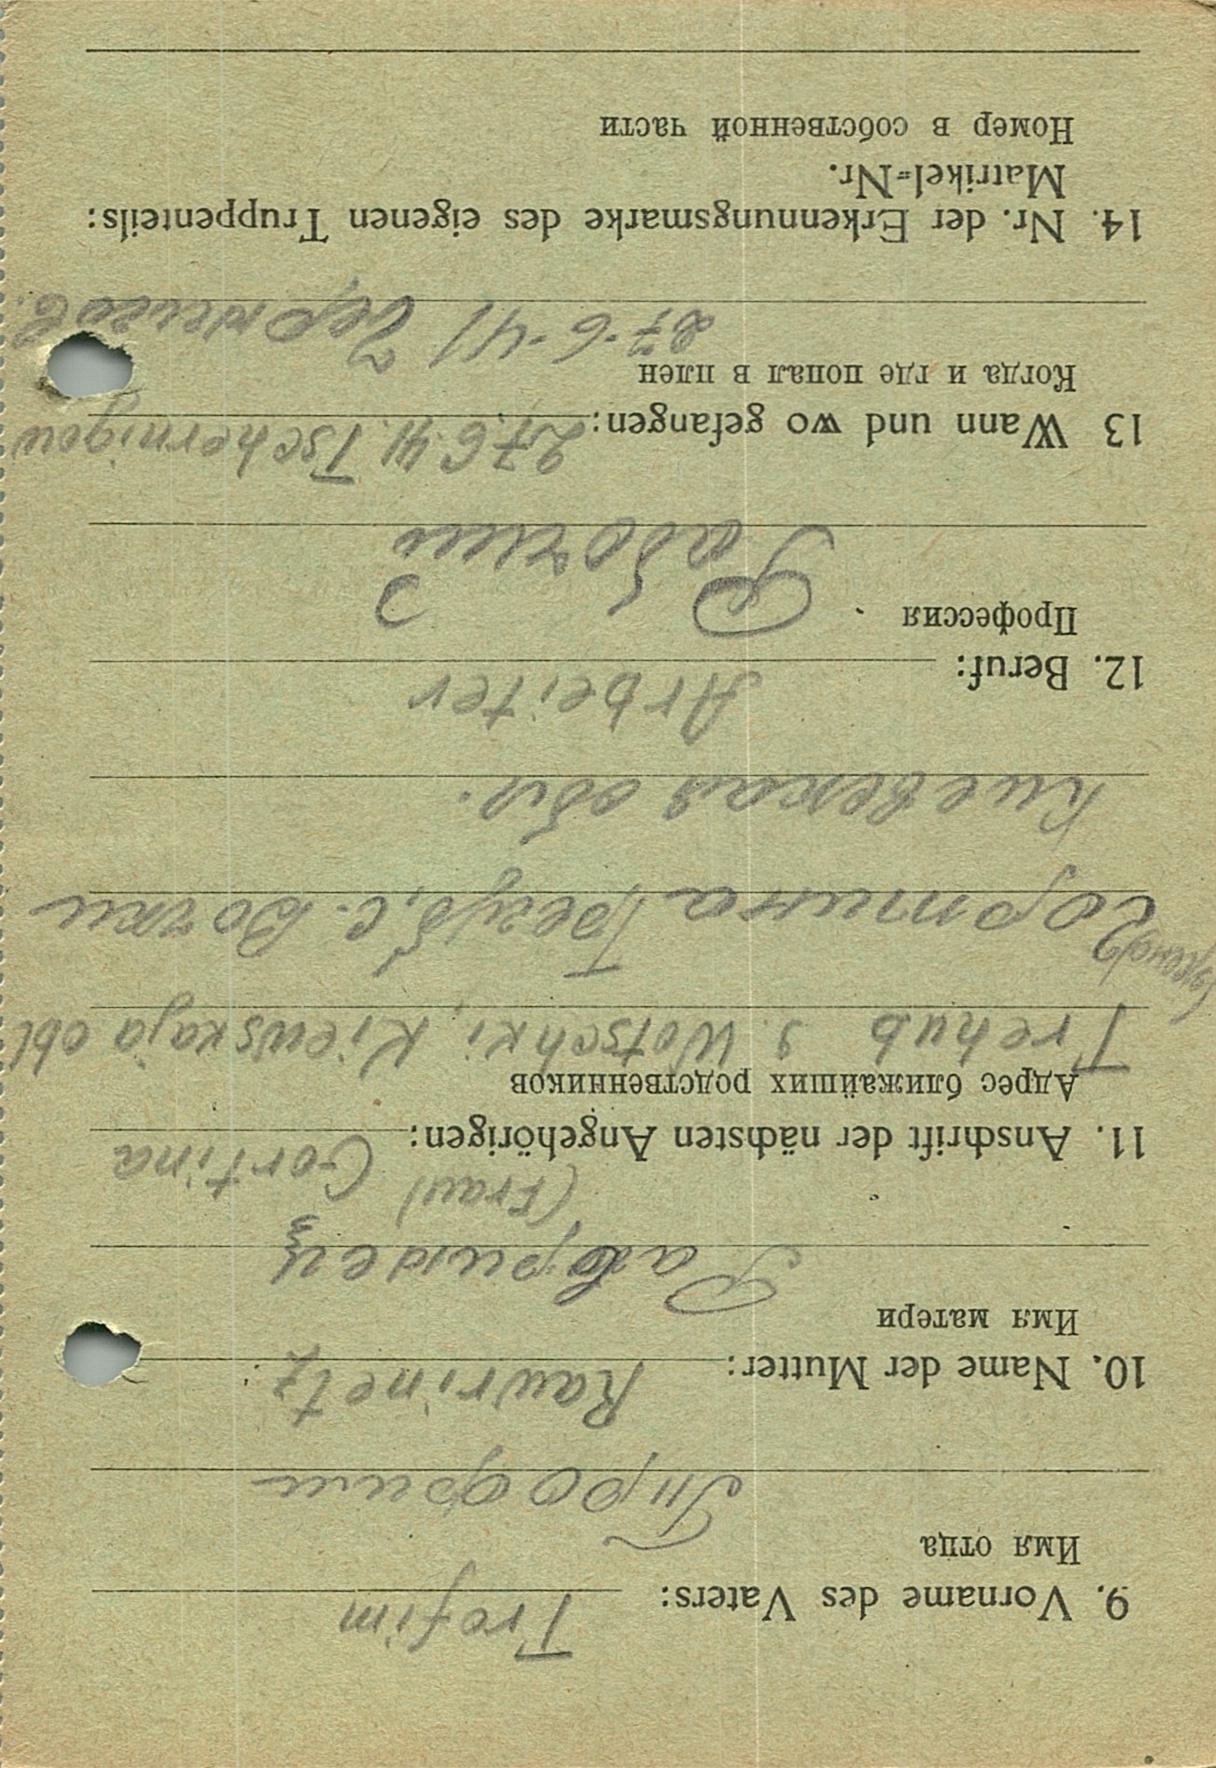 9. Vorname des Vaters: Trofim
Имя отца
Трофим
10. Name der Mutter: Rawrinetz
Имя матери
Равринец
(Frau) Gortina
11. Anschrift der nächsten Angehörigen:
Адрес ближайших родственников
Trehub s. Wotschki, Kiewskaja obl
Гортина Трегуб, с. Вочки
Киевская обл.
Arbeiter
12. Beruf:
Профессия
Рабочий
13 Wann und wo gefangen: 27.6.41. Tschernigow
Когда и где попал в плен
27-6-41 Чернигов.
14. Nr. der Erkennungsmarke des eigenen Truppenteils:
Matrikel=Nr.
Номер в собственной части